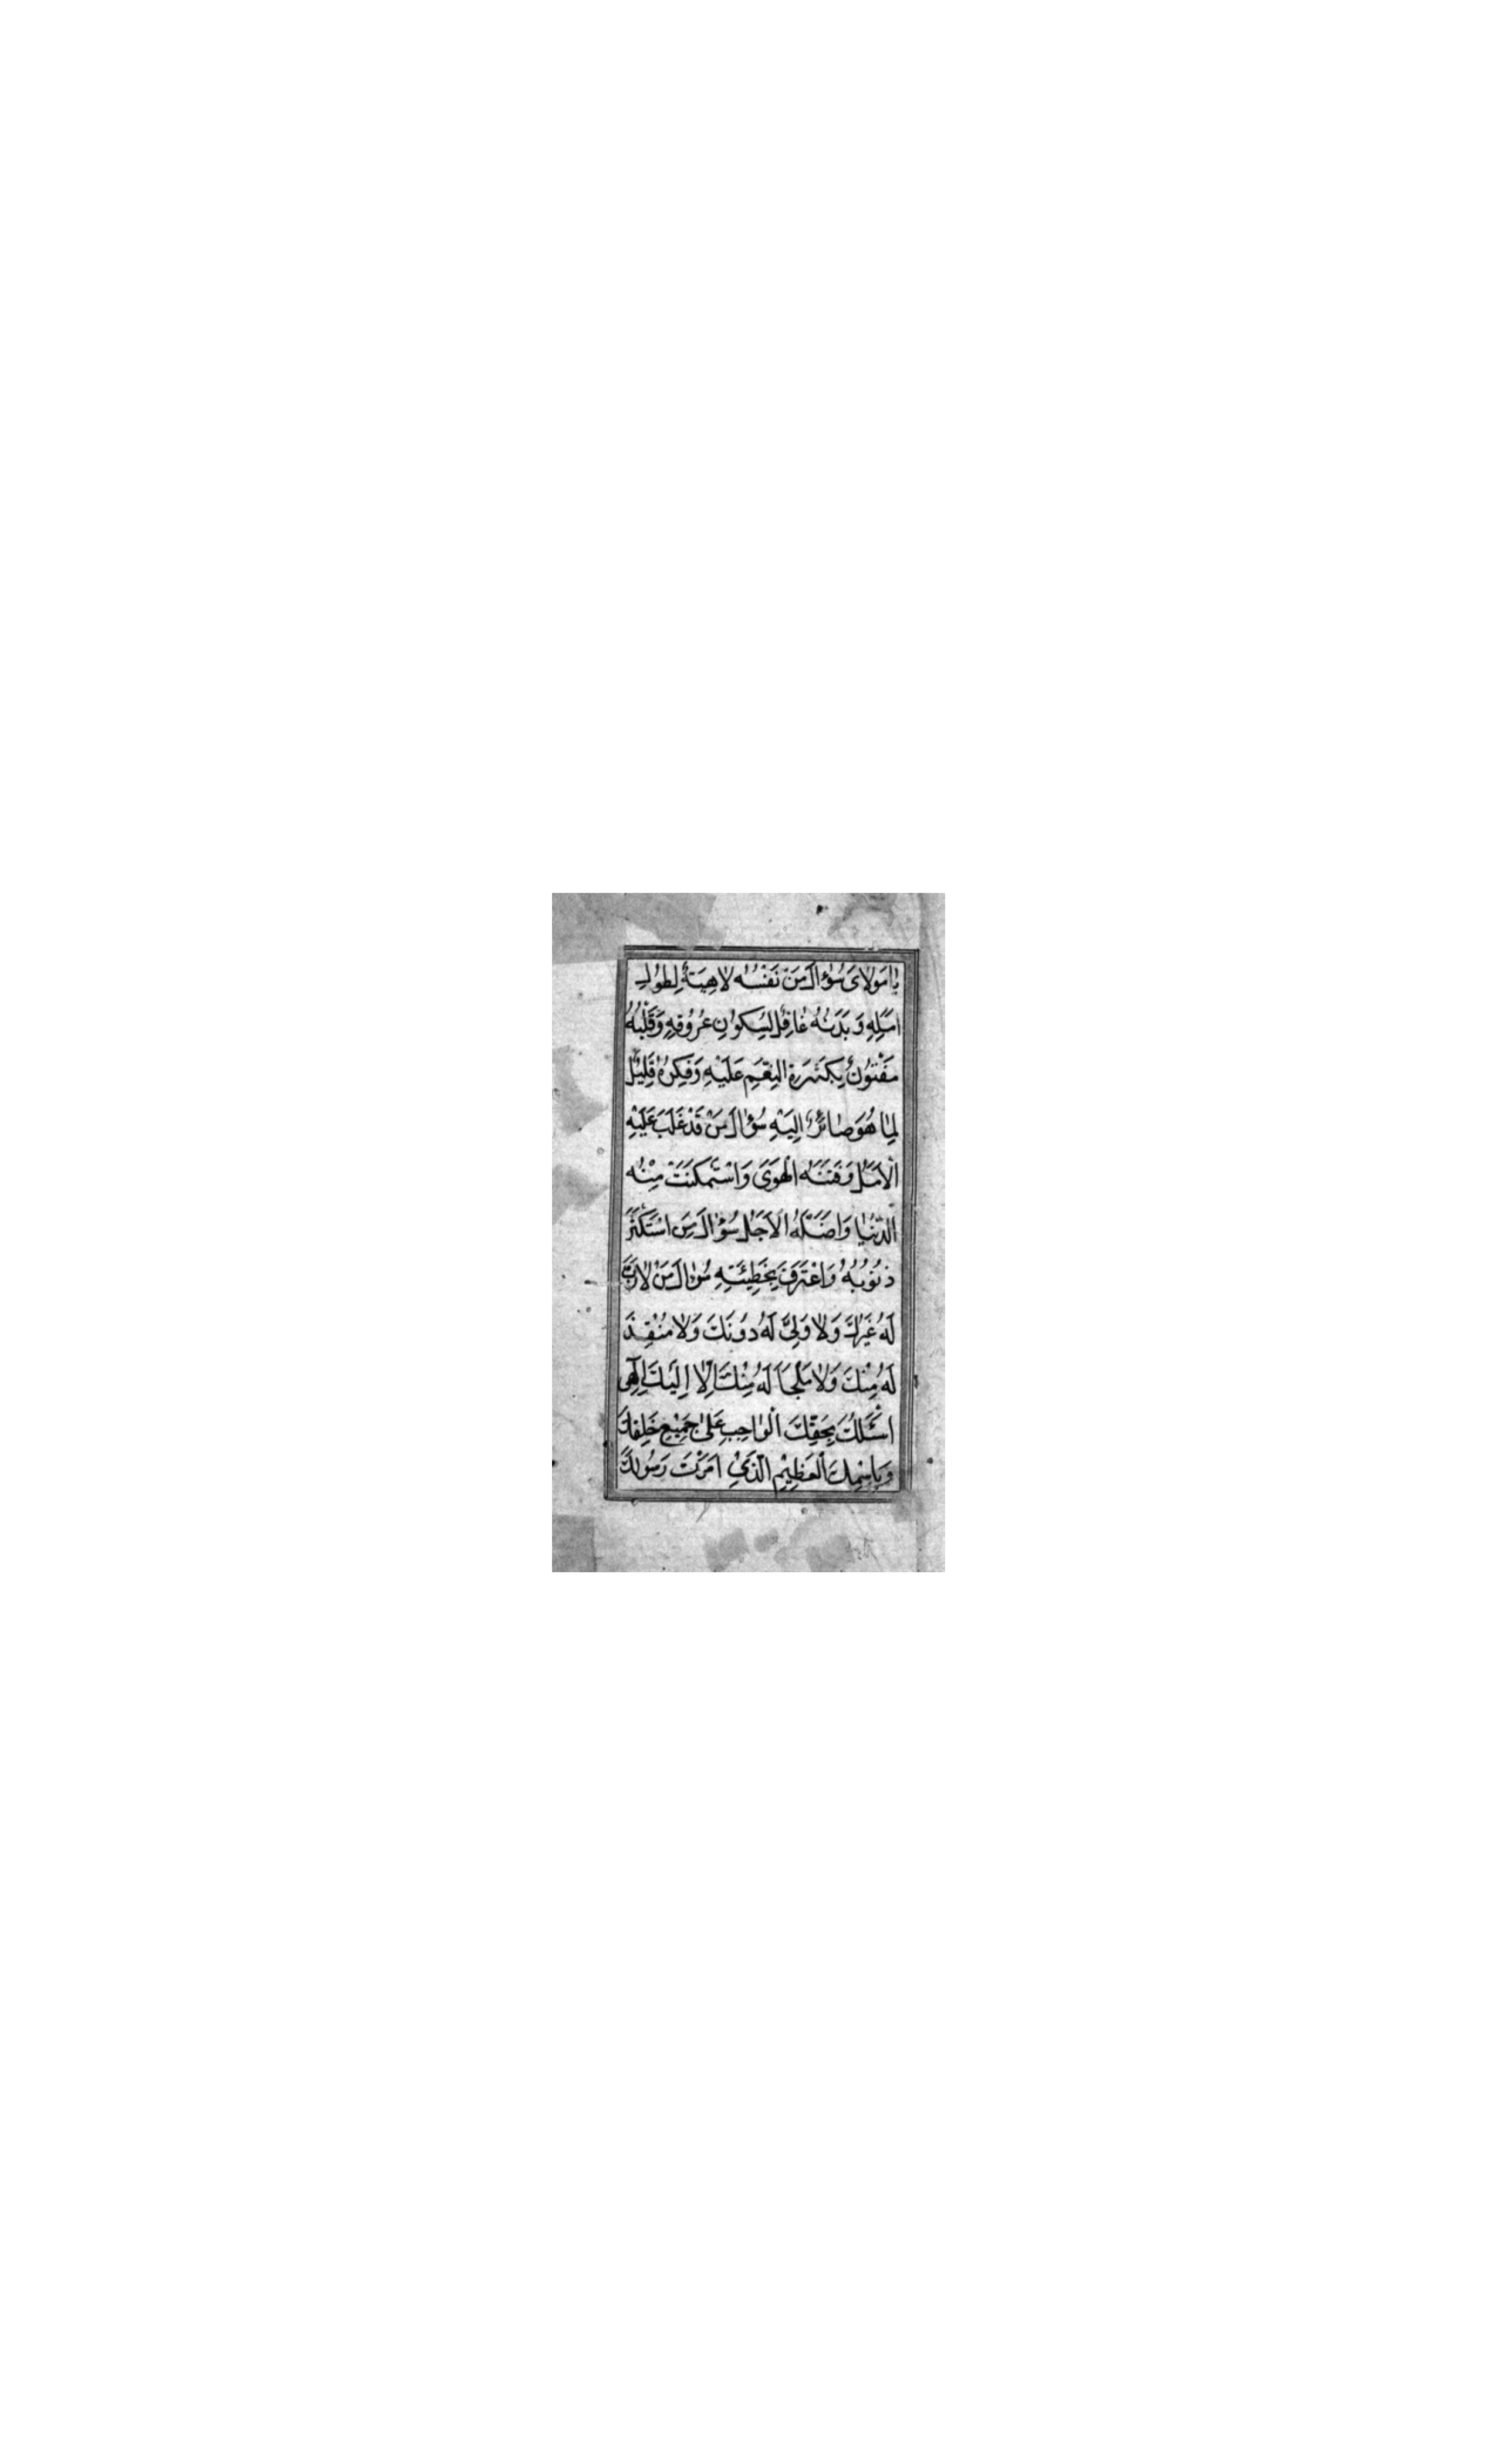 يا مَوْلايَ سُؤالَ مَنْ نَفْسُهُ لاهِيَةٌ لِطُولِ
اَمَلِهِ وَ بَدَنُهُ غافِلٌ لِسُكُونِ عُرُوقِهِ وَ قَلْبُهُ
مَفْتُونٌ بِكَثْرَةِ النِّعَمِ عَلَيْهِ وَ فِكْرُهُ قَلِيلٌ
لِما هُوَ صائِرٌ اِلَيْهِ سُؤالَ مَنْ قَدْ غَلَبَ عَلَيْهِ
الْاَمَلُ وَ فَتَنَهُ الْهَوَىٰ وَاسْتَمْكَنَتْ مِنْهُ
الدُّنْيا وَ اَضَلَّهُ الْاَجَلُ سُؤالَ مَنِ اسْتَكْثَرَ
ذُنُوبُهُ وَ اعْتَرَفَ بِخَطِيئَتِهِ سُؤالَ مَنْ لا رَبَّ
لَهُ غَيْرُكَ وَلا وَلِيَّ لَهُ دُونَكَ وَلا مُنْقِذَ
لَهُ مِنْكَ وَلا مَلْجَأَ لَهُ مِنْكَ اِلّا اِلَيْكَ اِلٰهِى
اَسْئَلُكَ بِحَقِّكَ الْواجِبِ عَلىٰ جَمِيعِ خَلْقِكَ
وَ بِاسْمِكَ الْعَظِيمِ الَّذِي اَمَرْتَ رَسُولَكَ